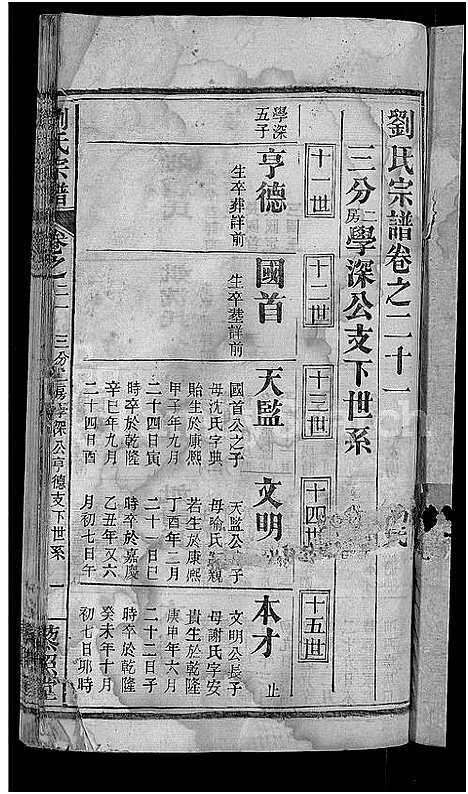 劉氏宗譜卷之二十一
三分二房學深公支下世系
十一世
十二世
十三世
十四世
十五世
學深
五子
亨德
生卒葬詳前
國首
生卒塟詳前
天監
國首公之子
母沈氏字典
貽生於康熙
甲子年九月
二十四日寅
時卒於乾隆
辛巳年九月
二十四日酉
文明
天監公子
母喻氏親
若生於康熙
丁酉年二月
二十一日巳
時卒於嘉慶
乙丑年又六
月初七日午
本才
止
文明公長子
母謝氏字安
貴生於乾隆
庚申年六月
二十二日子
時卒於乾隆
癸未年十月
初七日卯時
劉氏宗譜
卷之二一
三分二房學深公亨德支下世系
一